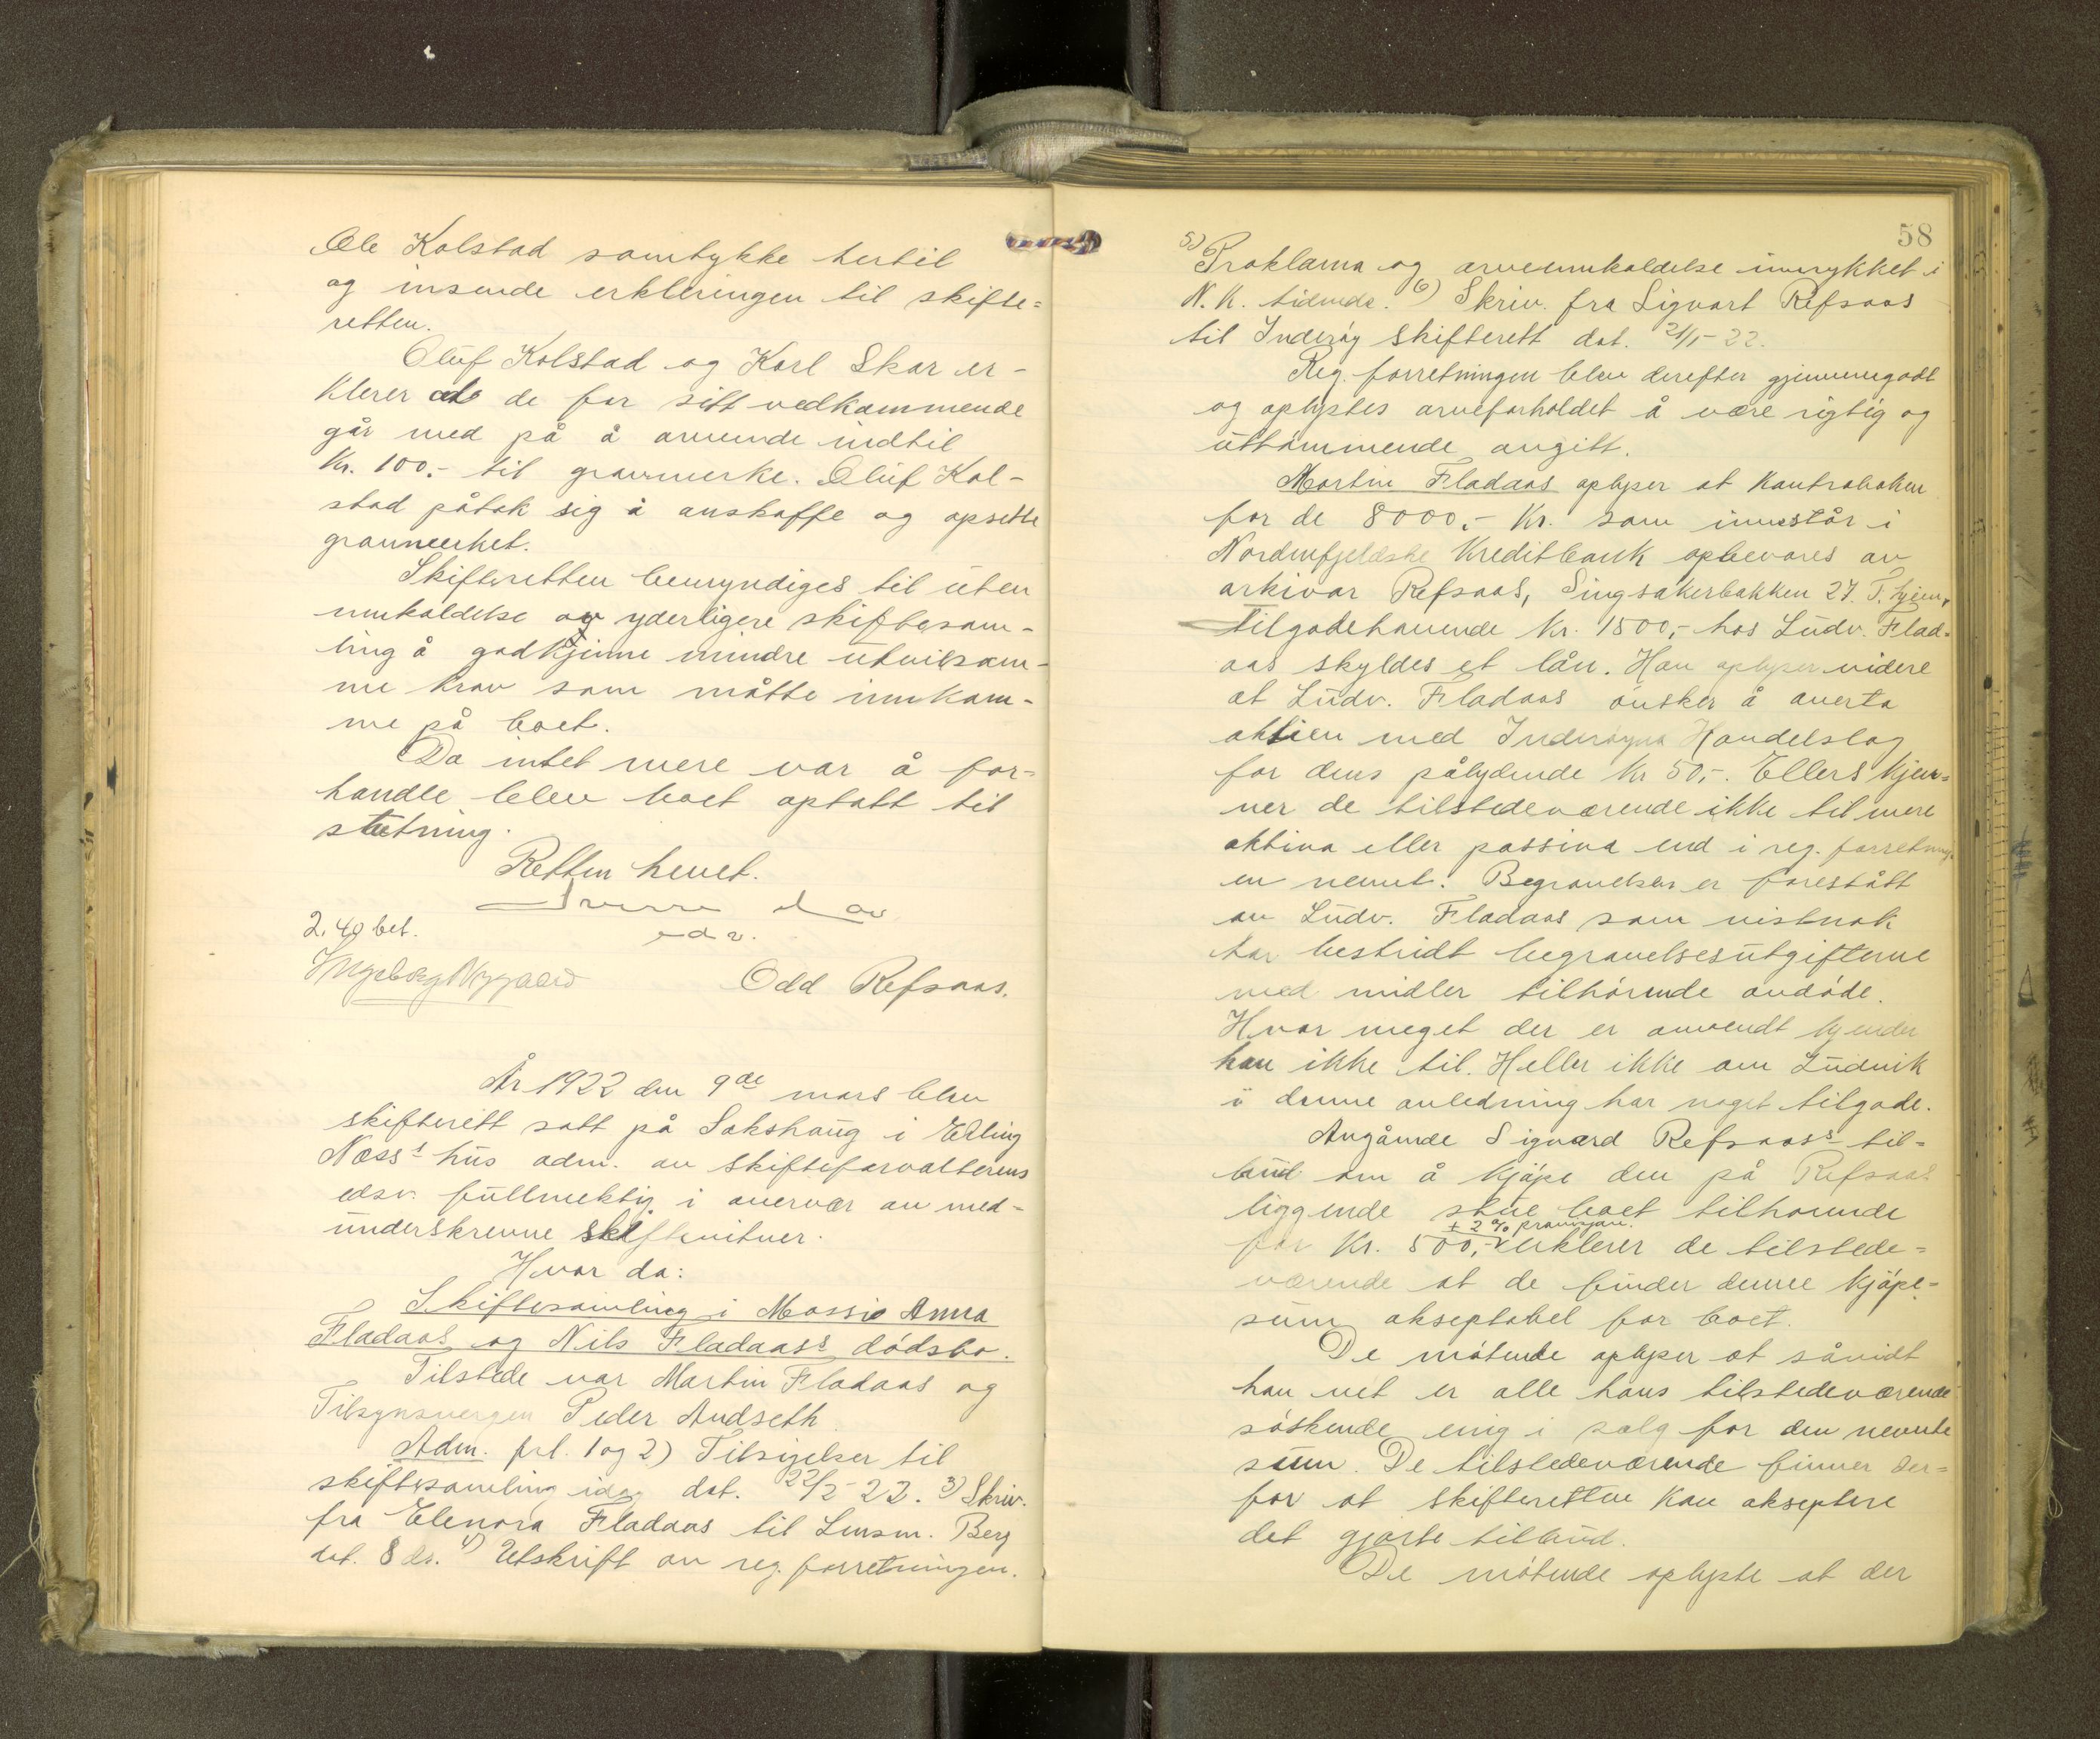 Ole Kolstad samtykke hertil
og insende erkleringen til skifte=
retten.
Oluf Kolstad og Karl Skar er-
klerer at de for sitt vedkommende
går med på å anvende indtil
Kr. 100.- til gravmerke. Oluf Kol-
stad påtok sig å anskaffe og opsette
gravmerket.
Skifteretten bemyndiges til uten
innkaldelse av yderligere skiftesam-
ling å godkjenne mindre utvilsom-
me krav som måtte innkom-
me på boet.
Da intet mere var å for-
handle blev boet optatt til
slutning.
Retten hevet.
Sverre
edv.
2.40 bet.
Ingeborg Nygaard
Odd Refsaas.
År 1922 den 9de mars blev
skifterett satt på Sakshaug i Erling
Næss's hus adm. av skifteforvalterens
edsv. fullmektig i overvær av med-
underskrevne skiftevitner.
Hvor da:
Skiftesamling i Massie Anna
Fladaas og Nils Fladaas's dødsbo.
Tilstede var Martin Fladaas og
Tilsynsvergen Peder Andseth
Adm. frl. 1 og 2) Tilsigelser til
skiftesamling idag dat. 22/2-22. 3) Skriv.
fra Elenora Fladaas til Lensm. Berg
dat. 8 ds. 4) Utskrift av reg. forretningen.
58
5) Proklama og arveinnkaldelse innrykket i
N. K. tidende. 6) Skriv. fra Sigvart Refsaas
til Inderøy skifterett dat. 21/1-22.
Reg. forretningen blev derefter gjennemgådt
og oplystes arveforholdet å være rigtig og
uttømmende angitt.
Martin Fladaas oplyser at kontraboken
for de 8000,- Kr. som innestår i
Nordenfjeldske Kreditbank opbevares av
arkivar Refsaas, Singsakerbakken 27. T.hjem.
Tilgodehavende Kr. 1500,- hos Ludv. Flad=
aas skyldes et lån. Han oplyser videre
at Ludv. Fladaas ønsker å overta
aktien med Inderøyna Handelslag
for dens pålydende Kr 50,-. Ellers kjen=
ner de tilstedeværende ikke til mere
aktiva eller passiva end i reg. forretning.
en nevnt. Begravelsen er forestått
av Ludv. Fladaas som visstnok
har bestridt begravelsesutgifterne
med midler tilhørende avdøde.
Hvor meget der er anvendt kjender
han ikke til. Heller ikke om Ludvik
i denne anledning har noget tilgode.
Angående Sigvard Refsaas's til=
bud om å kjøpe den på Refsaas
liggende stue boet tilhørende
± 2 % provisjon.
for Kr. 500,- erklerer de tilstede=
værende at de finder denne kjøpe=
sum akseptabel for boet.
De møtende oplyser at såvidt
han vet er alle hans tilstedeværende
søskende enig i salg for den nevnte
sum. De tilstedeværende finner der=
for at skifteretten kan akseptere
det gjorte tilbud.
De møtende oplyste at der